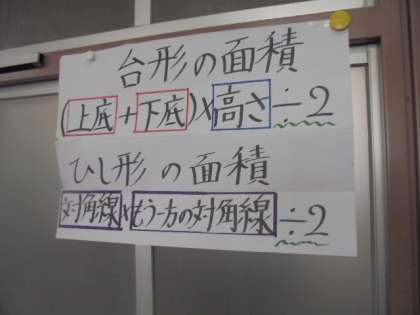 台形の面積
(上底+下底)×高さ÷2
ひし形の面積
対角線×もう一方の対角線÷2